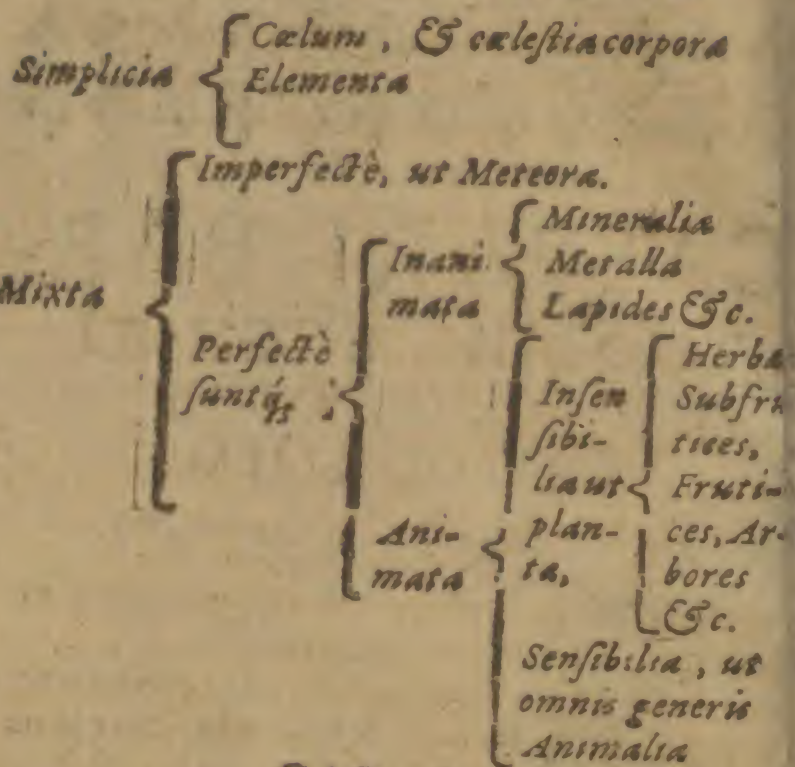 Simplicia
Cœlum, & cæleſtia corpora
Elementa
Mixta
Imperfectè, ut Meteora.
Perfectè
ſuntq́ꝫ ;
Inani
mata
Mineralia
Metalla
Lapides &c.
Ani-
mata
Inſen
ſibi-
lia ut
plan-
ta,
Herba
Subfru
tices,
Fruti-
ces, Ar-
bores
&c.
Senſibilia, ut
omnis generis
Animalia